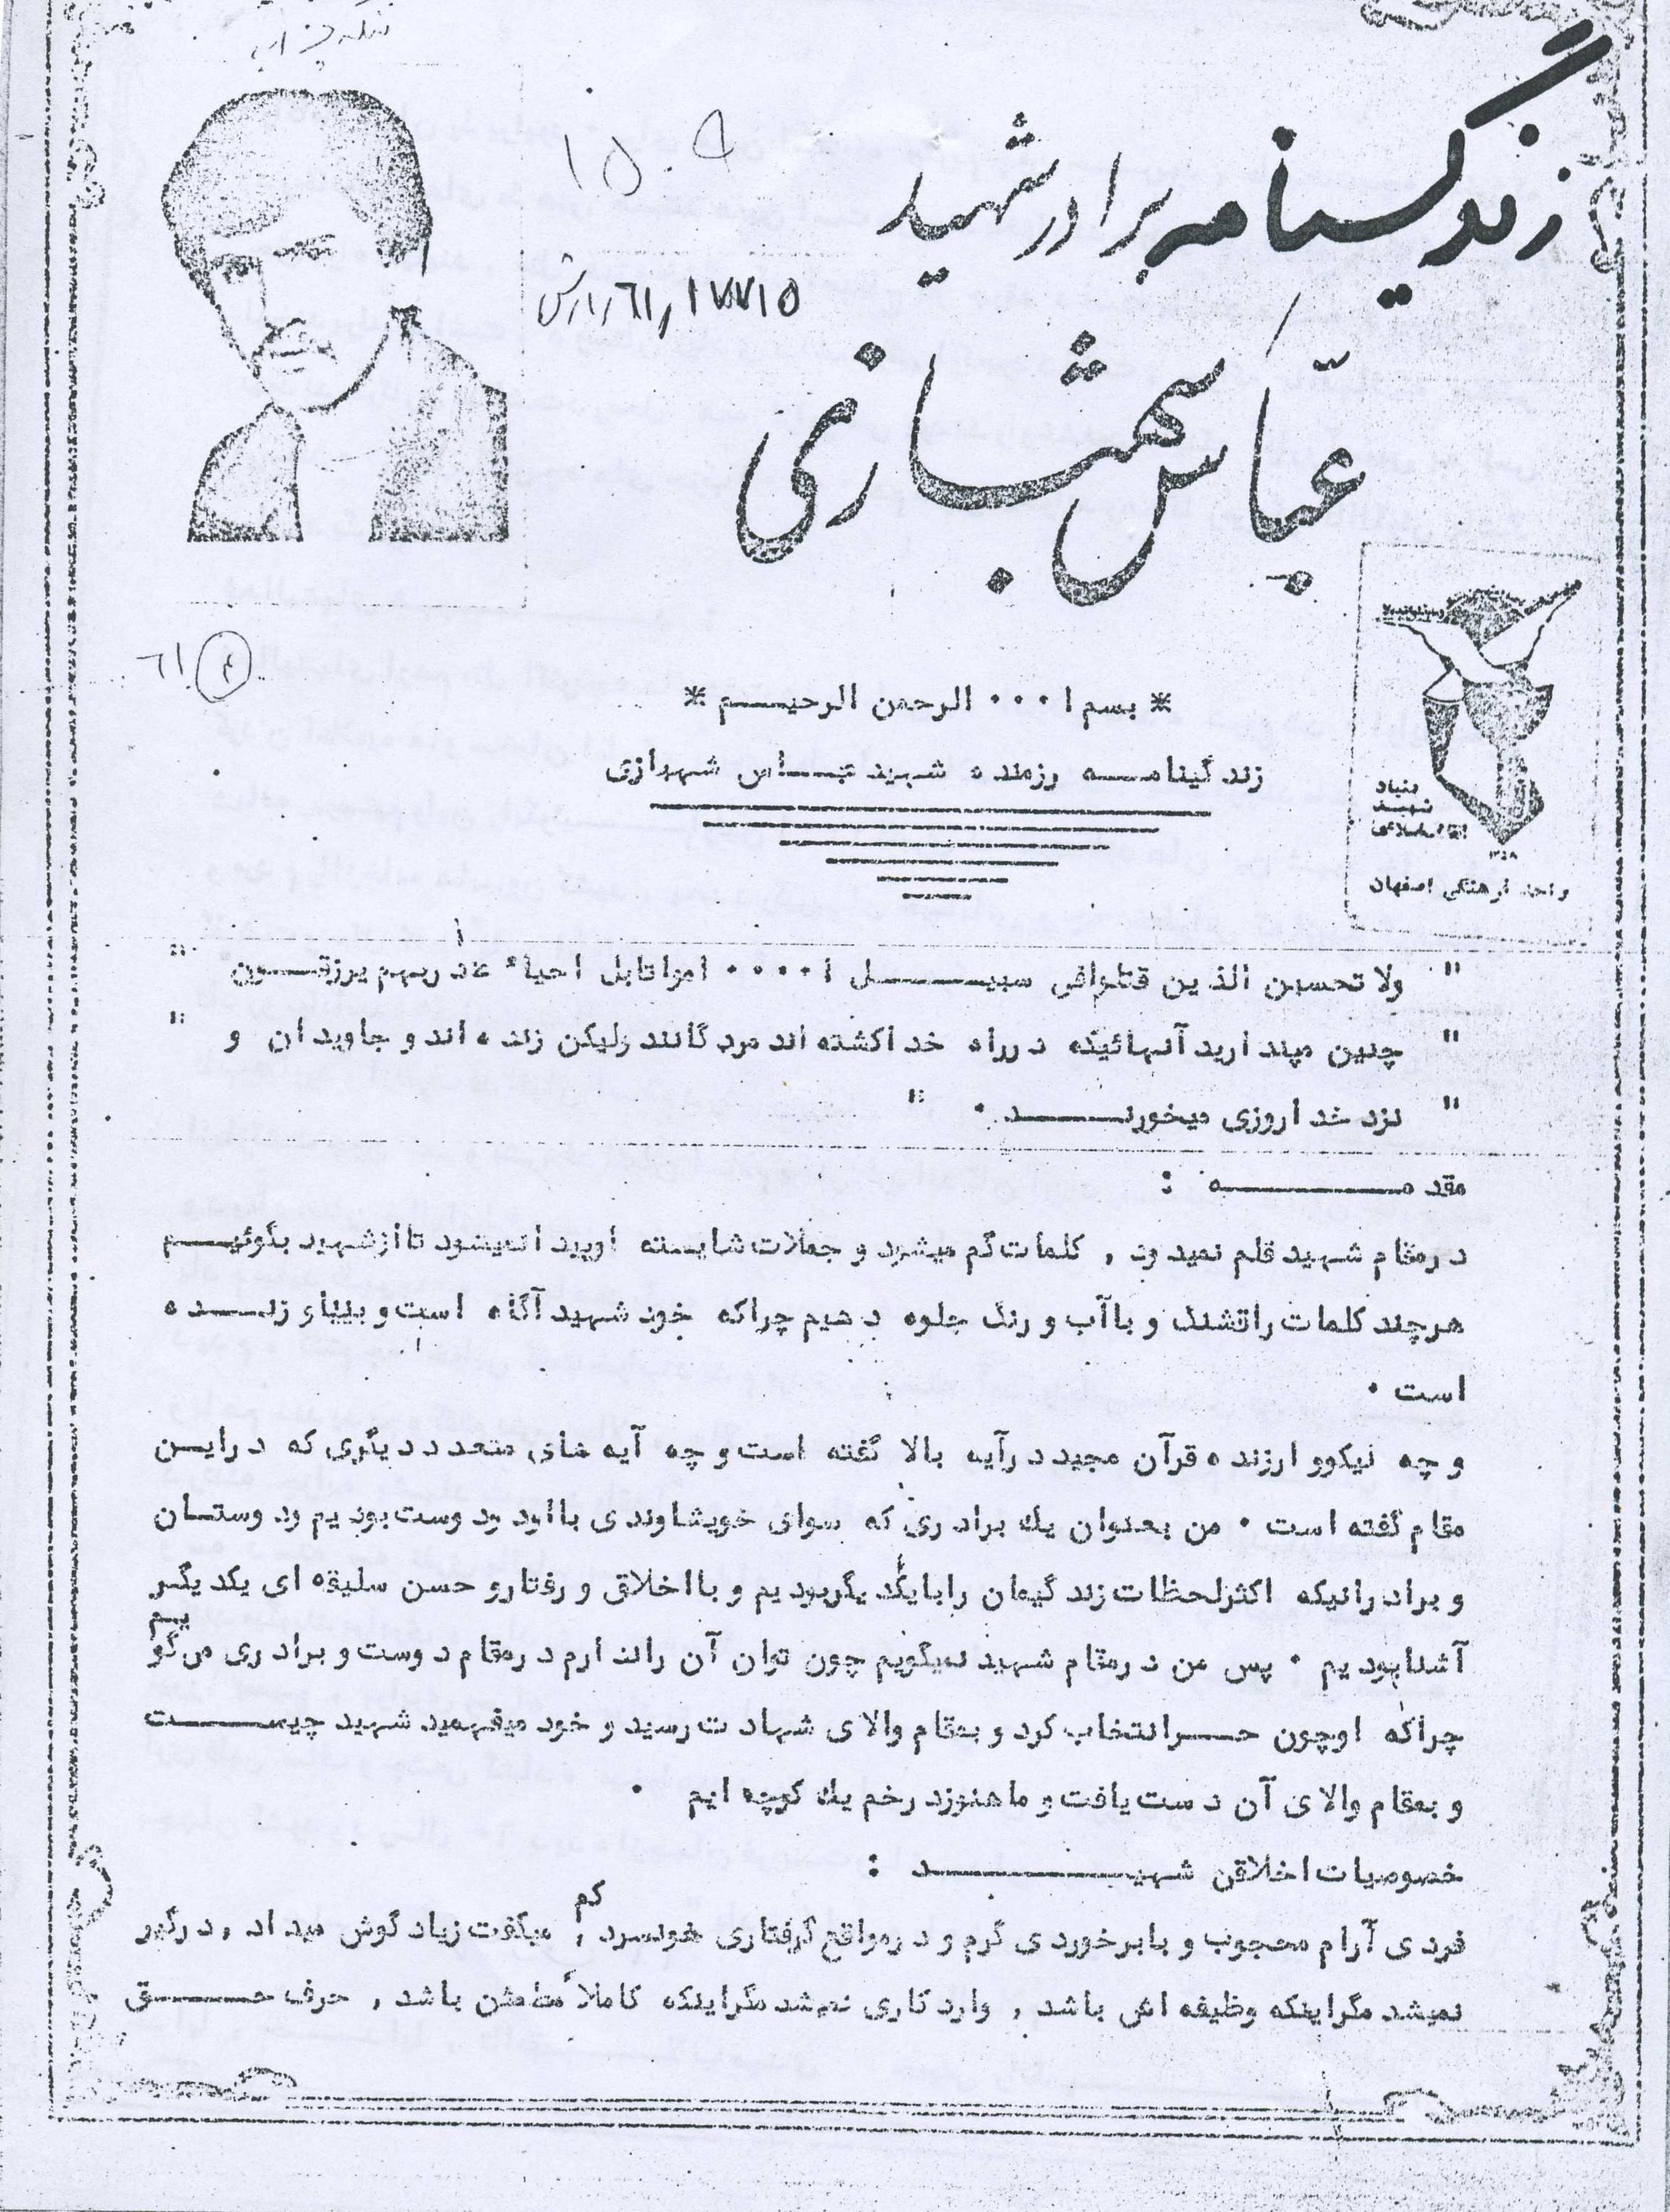 ۱۵۰۹
زندگینامه برادر شهید
۶۱٫۱۷۷۱۵
عبّاس شهبازی
۶۱ ۴
* بسم ا ۰۰۰ الرحمن الرحیم *
زندگینامه رزمنده شهید عباس شهبازی
بنیاد
شهید
انقلاب اسلامی
۱۳۵۸
واحد فرهنگی اصفهان
" ولا تحسبن الذین قتلوافی سبیل ا ۰۰۰۰ امواتابل احیاء عند ربهم یرزقون "
" چنین مپندارید آنهائیکه درراه خدا کشته اند مردگانند ولیکن زنده اند و جاویدان و "
" نزد خدا روزی میخورند ۰ "
مقدمه :
درمقام شهید قلم نمیدود , کلمات گم میشود و جملات شایسته اوپیدا نمیشود تا ازشهید بگوئیم
هرچند کلمات راقشنگ و باآب و رنگ جلوه دهیم چراکه خود شهید آگاه است و بینا و زنده
است ۰
و چه نیکوو ارزنده قرآن مجید درآیه بالا گفته است و چه آیه های متعدد دیگری که دراین
مقام گفته است ۰ من بعنوان یك برادری که سوای خویشاوندی بااودودوست بودیم ودوستان
و برادرانیکه اکثرلحظات زندگیمان رابایکدیگربودیم و بااخلاق و رفتارو حسن سلیقه ای یکدیگر
آشنابودیم ۰ پس من درمقام شهید نمیگویم چون توان آن راندارم درمقام دوست و برادری می گوییم
چراکه اوچون حر انتخاب کرد و بمقام والای شهادت رسید و خود میفهمید شهید چیست
و بمقام والای آن دست یافت و ما هنوزدرخم یك کوچه ایم ۰
خصوصیات اخلاقی شهید :
فردی آرام محجوب و بابرخوردی گرم و درمواقع گرفتاری خونسرد , کم میگفت زیاد گوش میداد , درگیر
نمیشد مگراینکه وظیفه اش باشد , وارد کاری نمیشد مگراینکه کاملاً مطمئن باشد , حرف حق